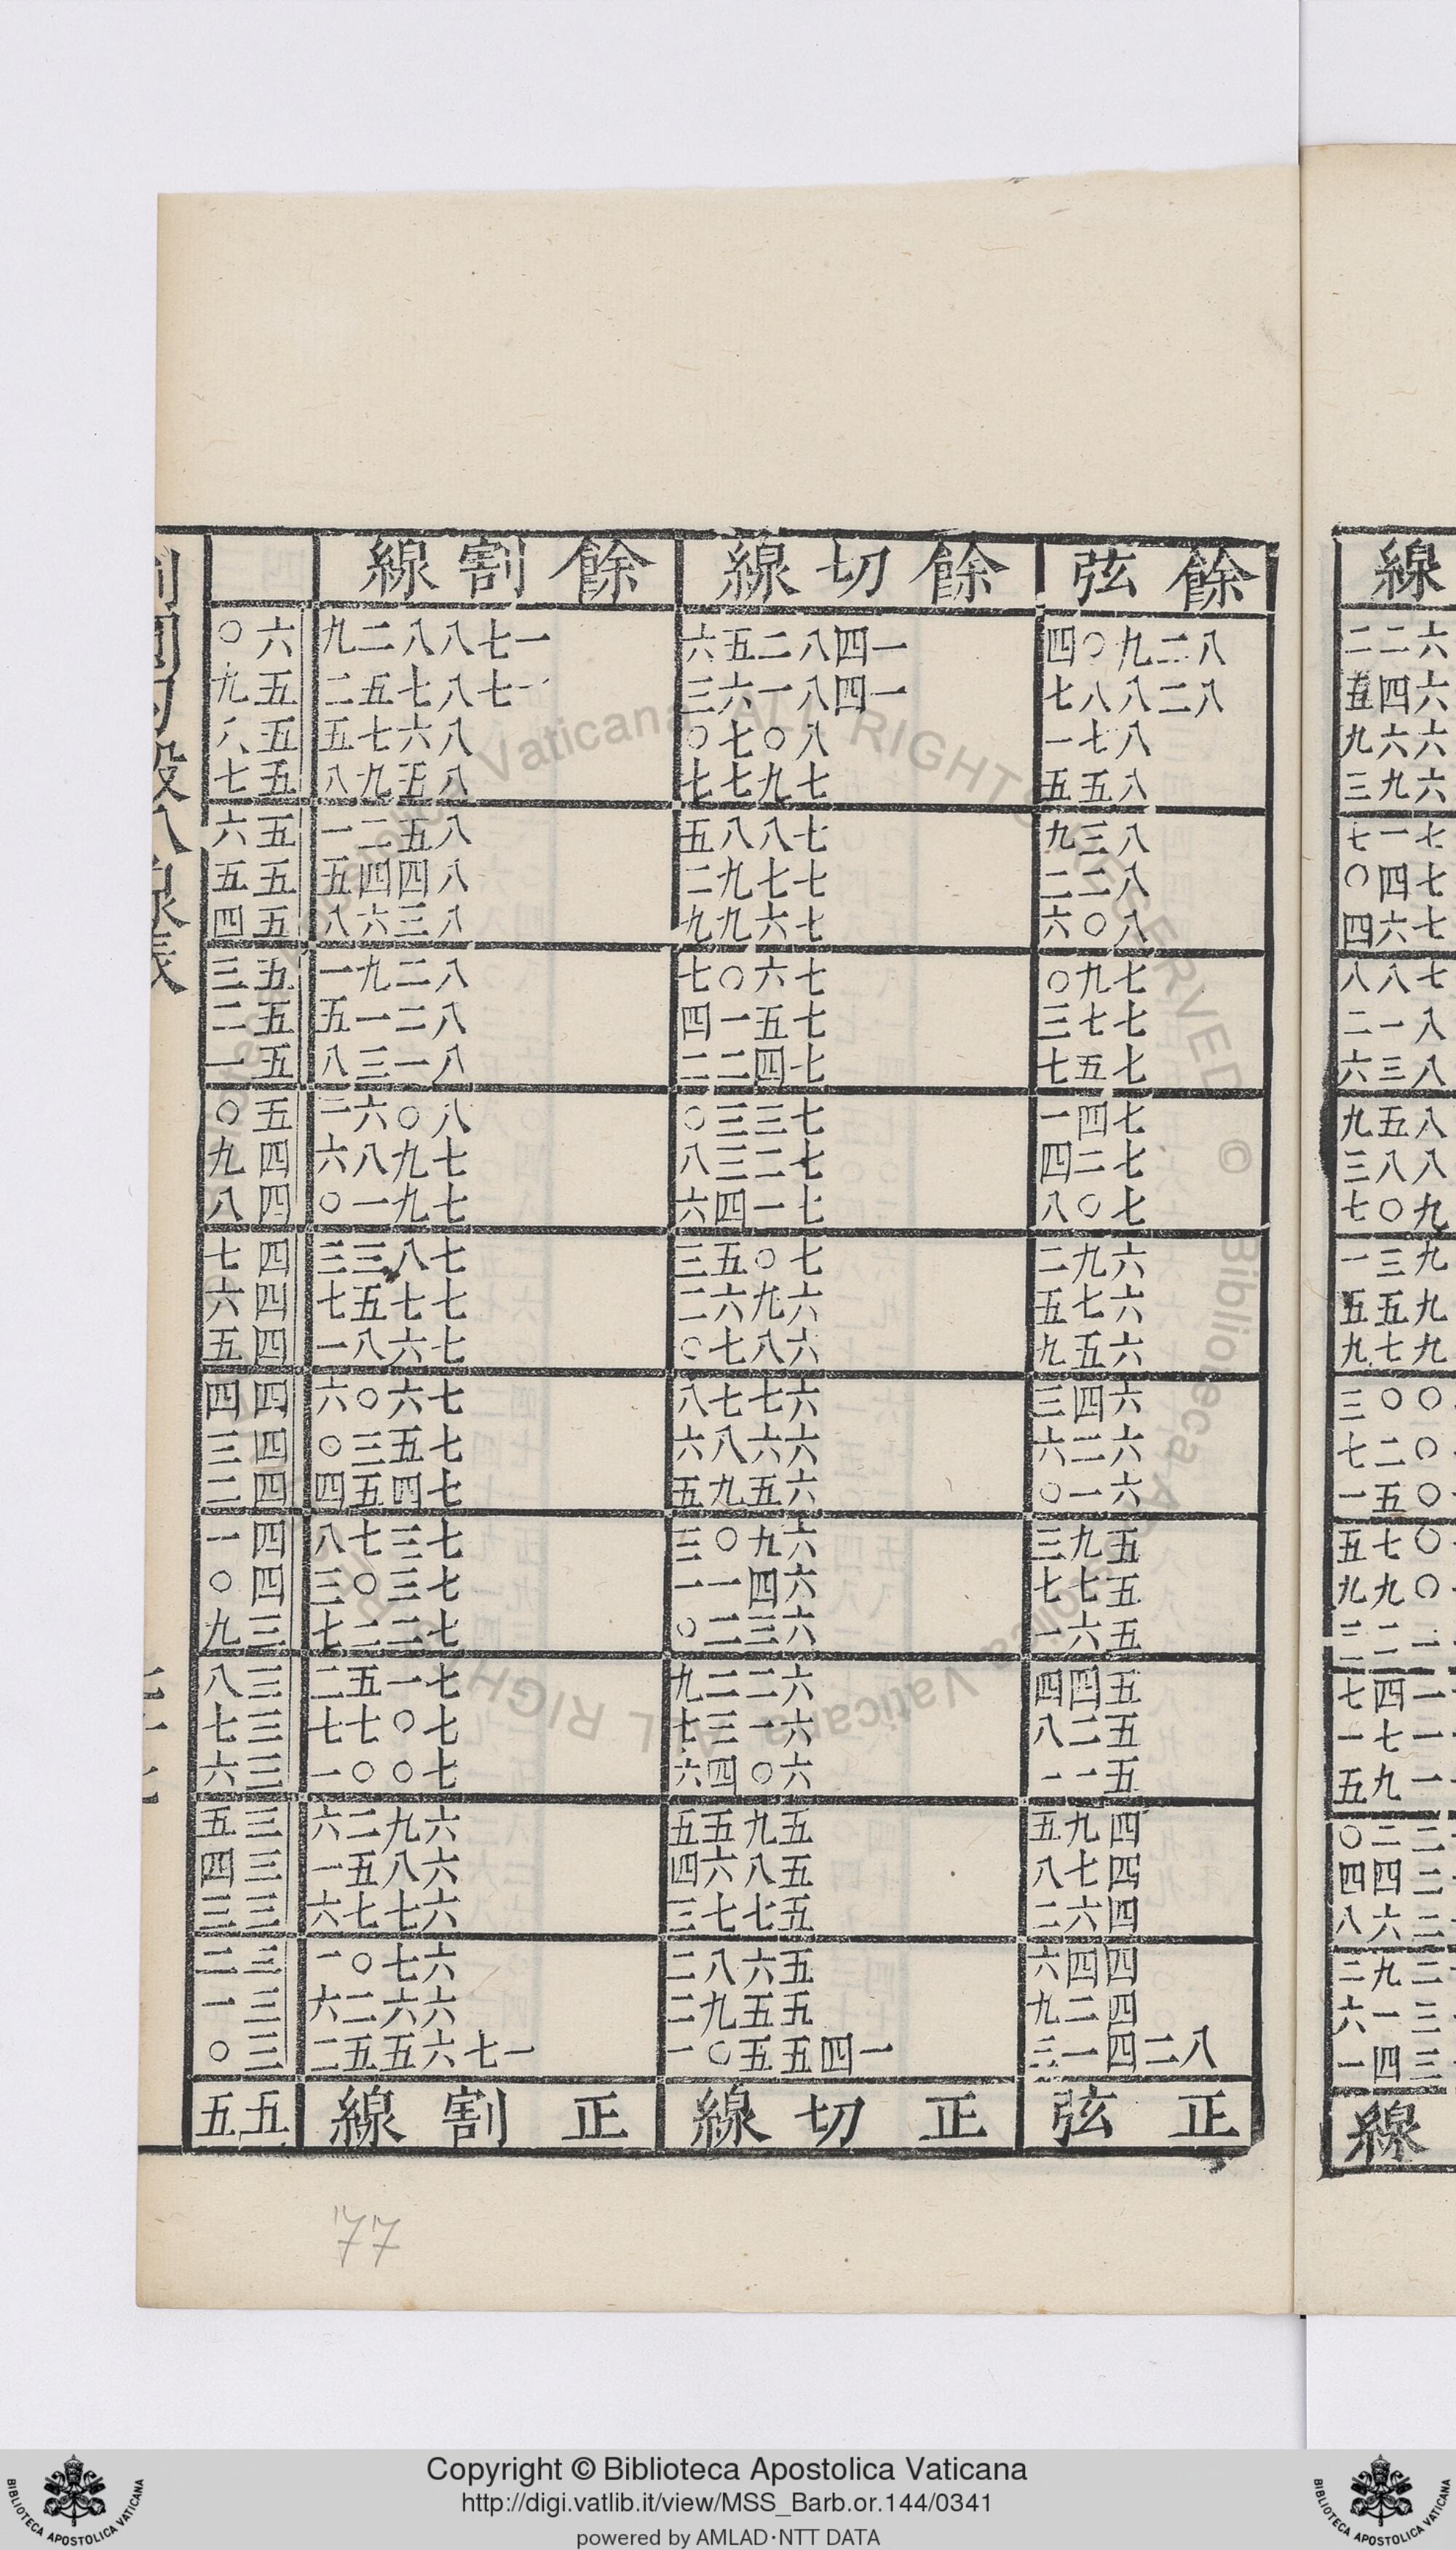 線
六二二
六四五
六六九
六九三
七一七
七四〇
七六四
七八八
八一二
八三六
八五九
八八三
九〇七
九三一
九五五
九七九
〇〇三
〇二七
〇五一
〇七五
〇九九
一二三
一四七
一七一
一九五
二二〇
二四四
二六八
二九二
三一六
三四一
線
餘弦 餘切線 餘割線
八二九〇四 一四八二五六 一七八八二九 六〇
八二八八七 一四八一六三 一七八七五二 五九
八七一 八〇七〇 八六七五 五八
八五五 七九七七 八五九八 五七
八三九 七八八五 八五二一 五六
八二二 七七九二 八四四五 五五
八〇六 七六九九 八三六八 五四
七九〇 七六〇七 八二九一 五三
七七三 七五一四 八二一五 五二
七五七 七四二二 八一三八 五一
七四一 七三三〇 八〇六二 五〇
七二四 七二三八 七九八六 四九
七〇八 七一四六 七九一〇 四八
六九二 七〇五三 七八三三 四七
六七五 六九六二 七七五七 四六
六五九 六八七〇 七六八一 四五
六四三 六七七八 七六〇六 四四
六二六 六六八六 七五三〇 四三
六一〇 六五九五 七四五四 四二
五九三 六九〇三 七三七八 四一
五七七 六四一一 七三〇三 四〇
五六一 六三二〇 七二二七 三九
五四四 六二二九 七一五二 三八
五二八 六一三七 七〇七七 三七
五一一 六〇四六 七〇〇一 三六
四九五 五九五五 六九二六 三五
四七八 五八六四 六八五一 三四
四六二 五七七三 六七七六 三三
四四六 五六八二 六七〇一 三二
四二九 五五九二 六六二六 三一
八二四一三 一四五五〇一 一七六五五二 三〇
正弦 正切線 正割線 五五
77
Copyright © Biblioteca Apostolica Vaticana
http://digi.vatlib.it/view/MSS_Barb.or.144/0341
powered by AMLAD·NTT DATA